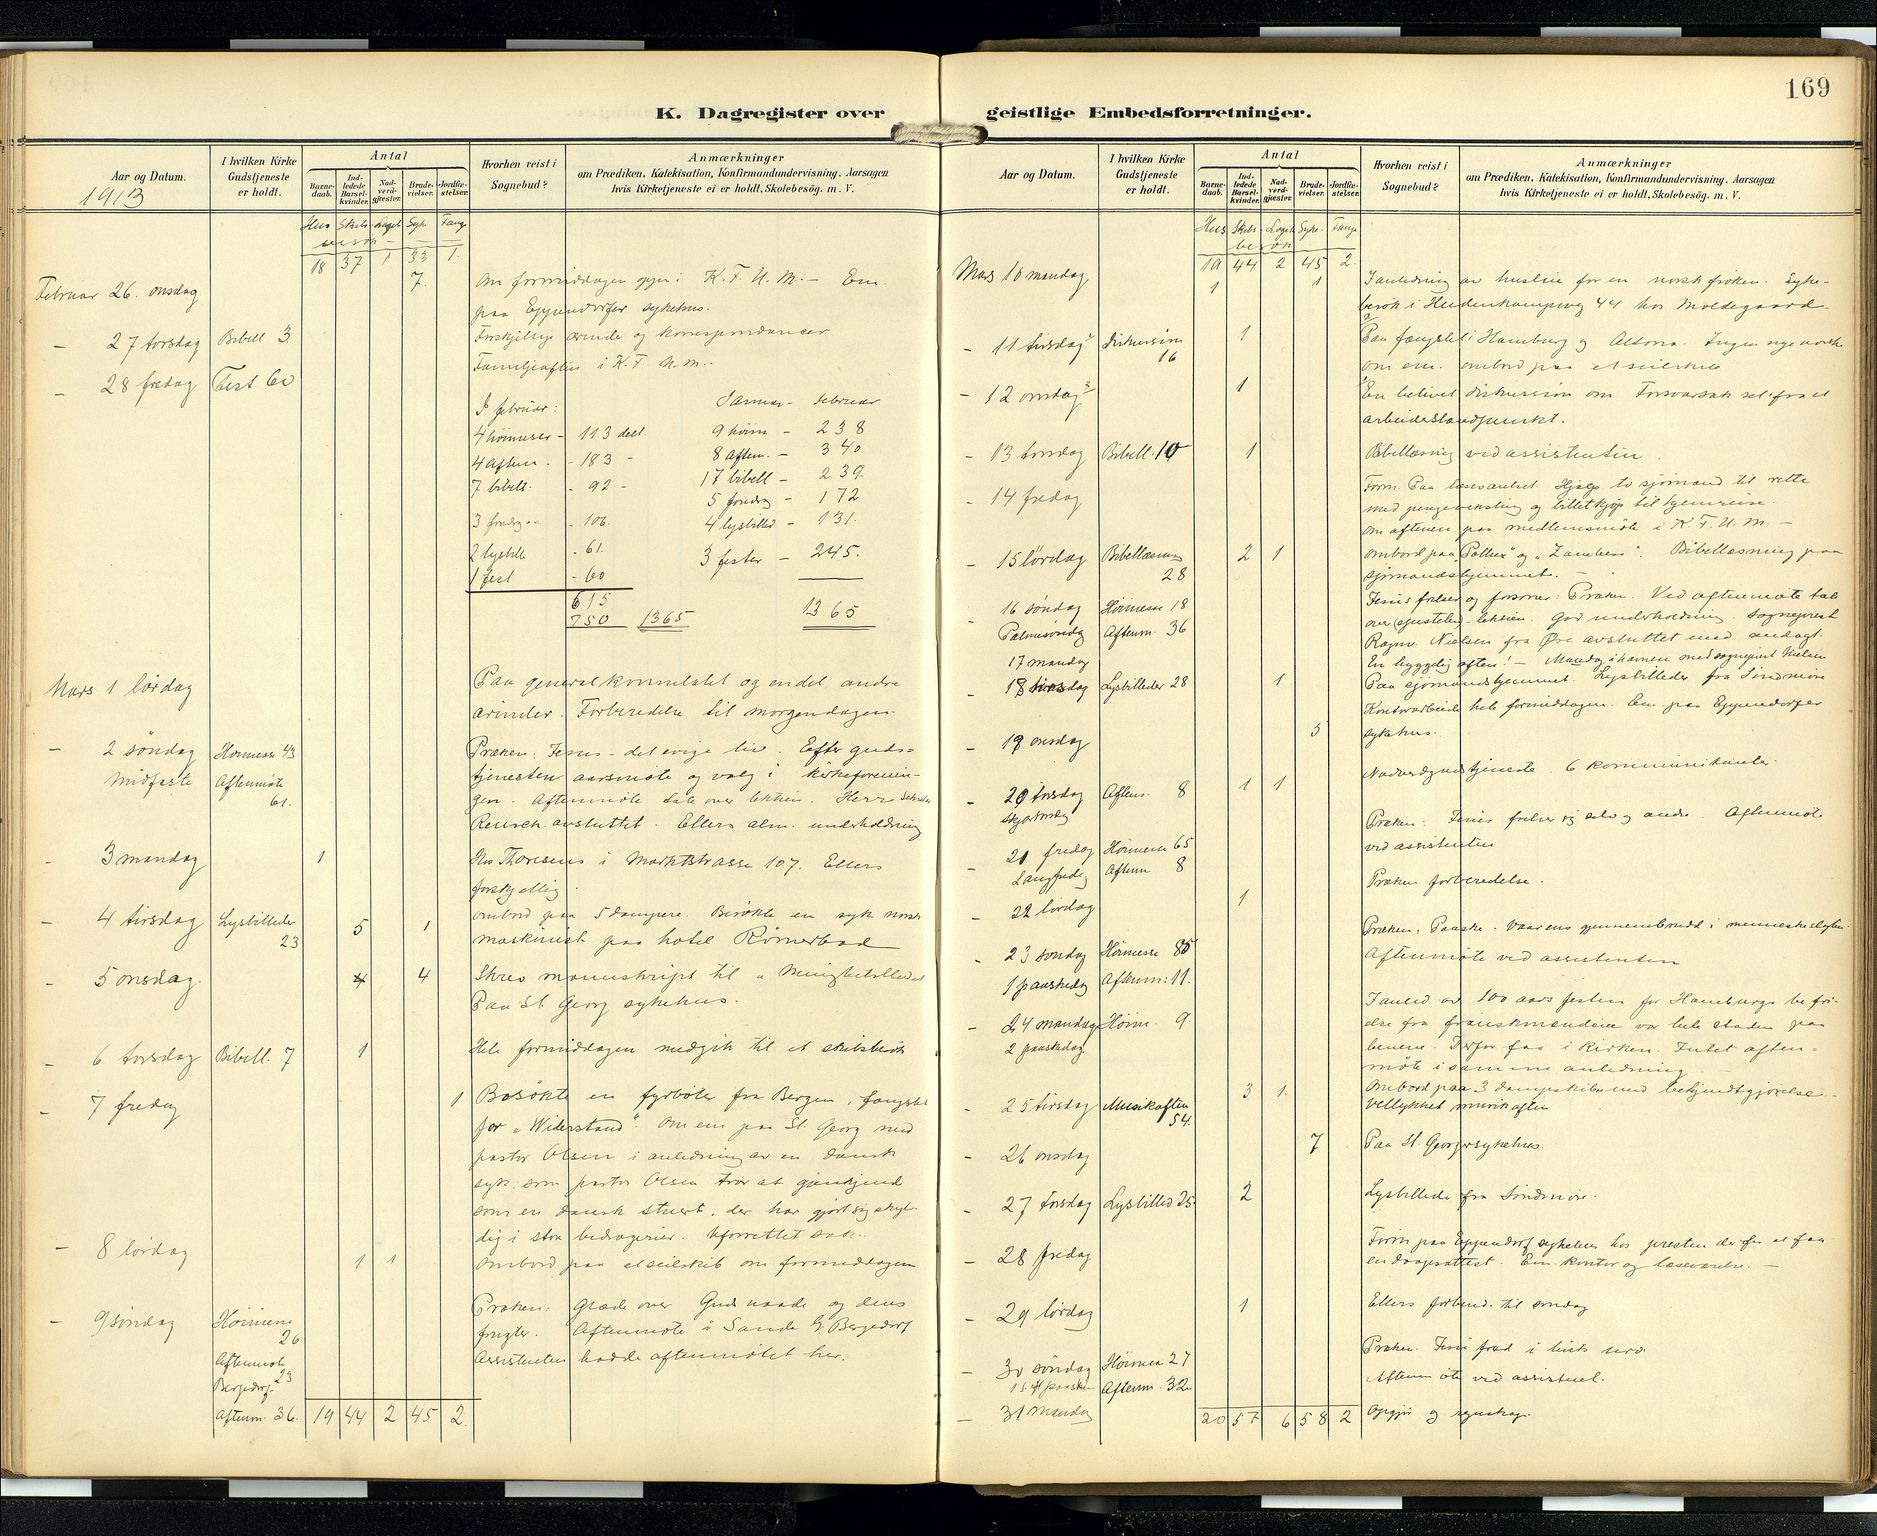 169
K. Dagregister over geistlige Embedsforretninger.
Aar og Datum.
1913
I hvilken Kirke Gudstjeneste er holdt.
Antal
Barne-daab.
Ind-ledede Barsel-kvinder.
Nad-verd-gjæster.
Brude-vielser.
Jordfæ-stelser.
Hvorhen reist i Sognebud?
Anmærkninger
om Prædiken, Katekisation, Konfirmandundervisning, Aarsagen
hvis Kirketjeneste ei er holdt, Skolebesög. m. V.
Hus Skibs Logi Syke Fange
besøk
18 37 1 33 1.
Februar 26. onsdag 7. Om formiddagen oppe i K.F.U.M. - Em
paa Eppendorfer sykehus.
- 27 torsdag Bibell 3. Forskjellige ærinde og korrespondancer
- 28 fredag Fest 60 Familjeaften i K.F.U.M.
I februar: Januar - Februar
4 høimesser - 113 delt. 9 høim - 238
4 Aftenm. - 183 - 8 Aftenm. - 340
7 bibell. - 92 - 17 bibell - 239.
3 foredrag - 106. 5 foredrag - 172
2 lysbille - 61. 4 lysbilled - 131.
1 fest - 60 3 fester - 245.
615 1365
750 1365
Mars 1 lørdag Paa generalkonsulatet og endel andre
ærinder. Forberedelse til morgendagen.
- 2 søndag Høimesse 43 Præken: Jesus - det evige liv. Efter guds=
Midfaste Aftenmøte 61. tjenesten aarsmøte og valg i kirkeforenin-
gen. Aftenmøte tale over lektien. Herr Sekretær
Reusch avsluttet. Ellers alm. underholdning
- 3 mandag 1 Hos Thoresens i Marktstrasse 107. Ellers
forskjellig.
- 4 tirsdag Lysbilleder 23 5 1 Ombord paa 5 dampere. Besøkte en syk norsk
maskinist paa hotel Römerbad
- 5 onsdag. 4 Skrev manuskript til "Menighetsbladet
Paa St. Georg sykehus.
- 6 torsdag Bibell. 7 1 Hele formiddagen medgik til et skibsbesøk
- 7 fredag 1 Besøkte en fyrbøter fra Bergen, fængslet
for "Widerstand". Om em paa St. Georg med
pastor Olsen i anledning av en dansk
syk. som pastor Olsen tror at gjenkjend
som en dansk stuert, der har gjort sig skyl-
dig i store bedragerier. Uforrettet sak.
- 8 lørdag 1 1 Ombord paa et seilskib om formiddagen
- 9 søndag Høimesse 26 Præken: Glæde over Guds naade og dens
Aftenmøte Bergedorf 23 frugter. Aftenmøte i Sande b/ Bergedorf
Aftenm. 36. Assistenten hadde aftenmøtet her.
19 44 2 45 2.
Aar og Datum.
I hvilken Kirke Gudstjeneste er holdt.
Antal
Barne-daab.
Ind-ledede Barsel-kvinder.
Nad-verd-gjæster.
Brude-vielser.
Jordfæ-stelser.
Hvorhen reist i Sognebud?
Anmærkninger
om Prædiken, Katekisation, Konfirmandundervisning, Aarsagen
hvis Kirketjeneste ei er holdt, Skolebesög. m. V.
Hus Skibs Logi Syke- Fange
besøk
19 44 2 45 2.
Mars 10 mandag 1 1 I anledning av husleie for en norsk frøken. Syke-
besøk i Heidenkampsweg 44 hos Moldegaard
- 11 tirsdag Diskussion 16 1 Paa fængslet i Hamburg og Altona. Ingen nye norsk
om em. ombord paa et seilskib
- 12 onsdag 1 En belivet diskussion om Forsvarssak set fra et
arbeiderstandpunkt.
- 13 torsdag Bibell. 10 1 Bibellæsning ved assistenten.
- 14 fredag Form. Paa læseværelset. Hjalp to sjømænd til rette
med pengeveksling og billetkjøp til hjemreise.
Om aftenen paa medlemsmøte i K.F.U.M. -
- 15 lørdag Bibellæsning 28 2 1 Ombord paa "Pollux" og "Zambesi". Bibellæsning paa
sjømandshjemmet.
- 16 søndag Høimesse 18 Jesus frelser og forsoner: Præken. Ved aftenmøte tale
Palmesøndag Aftenm. 36 over epistelen-lektien. God underholdning. Sogneprest
Ragnv. Nielsen fra Øre avsluttet med andagt.
17 mandag En hyggelig aften! - Mandag i havnen med sogneprest Nielsen
- 18 tirsdag Lysbilleder 28 1 Paa sjømandshjemmet. Lysbilleder fra Søndmøre
Kontorarbeide hele formiddagen. Em. paa Eppendorfer
- 19 onsdag 5 sykehus.
- 20 torsdag Aftens. 8 1 1 Nadverdgudstjeneste. 6 kommunikanter.
Skjærtorsdag
- 21 fredag Høimesse 65 Præken: Jesus frelser sig selv og andre. Aftenmøte
Langfredag Aftenm 8 ved assistenten
- 22 lørdag 1 Præken forberedelse.
- 23 søndag Høimesse 85 Præken: Paaske. Vaarens gjennembrudd i menneskelivet.
1 paaskedag Aftenm: 11. Aftenmøte ved assistenten
- 24 mandag Høim. 9. I anled. av 100 aars festen for Hamburgs befri-
2 paaskedag else fra franskmændene var hele staden paa
benene. Derfor faa i kirken. Intet aften=
møte i samme anledning.
- 25 tirsdag Musikaften 54. 3 1. Ombord paa 3 dampskibe med bekjendtgjørelse.
Vellykket musikaften
- 26 onsdag 7 Paa St. Georgersykehus.
- 27 torsdag Lysbilled 25. 2 Lysbillede fra Søndmøre.
- 28 fredag Form paa Eppendorf sykehus hos presten der for at faa
en daapsattest. Em. kontor og læseværelse. -
- 29 lørdag 1 Ellers forbered. til søndag
- 30 søndag Høimesse 27 Præken. Jesu fred i livets uro.
1 s. eft paaske Aftenm. 32 Aftenmøte ved assistent.
- 31 mandag Opgjør og regnskap.
20 57 6 58 2